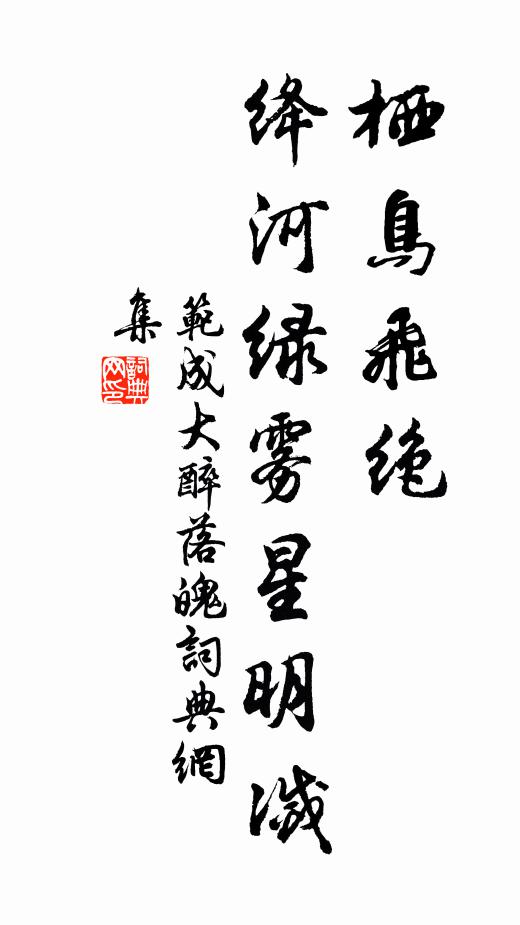 栖鳥飛絶
绛河緑雾星明滅
範成大醉落魄詞典網
集
詞典網印